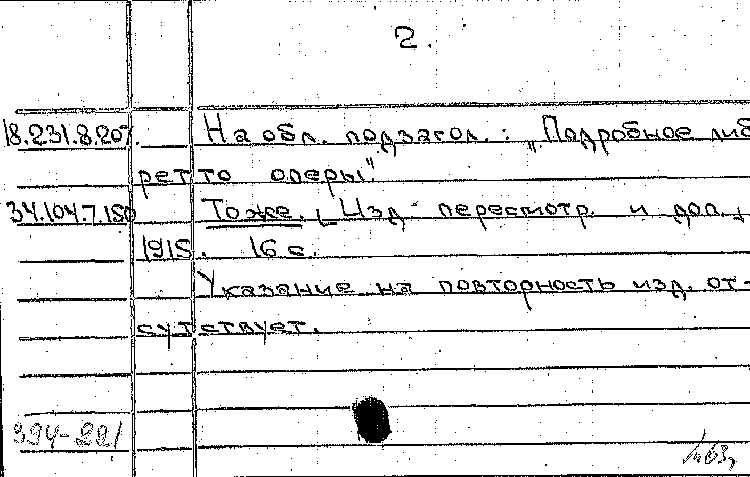 2.
18.231.8.207. На обл. подзагол.: „Подробное либ
ретто оперы."
34.104.7.150 Тоже. [Изд. пересмотр. и доп.],
1915. 16 с.
Указание на повторность изд. от-
сутствует.
394-221